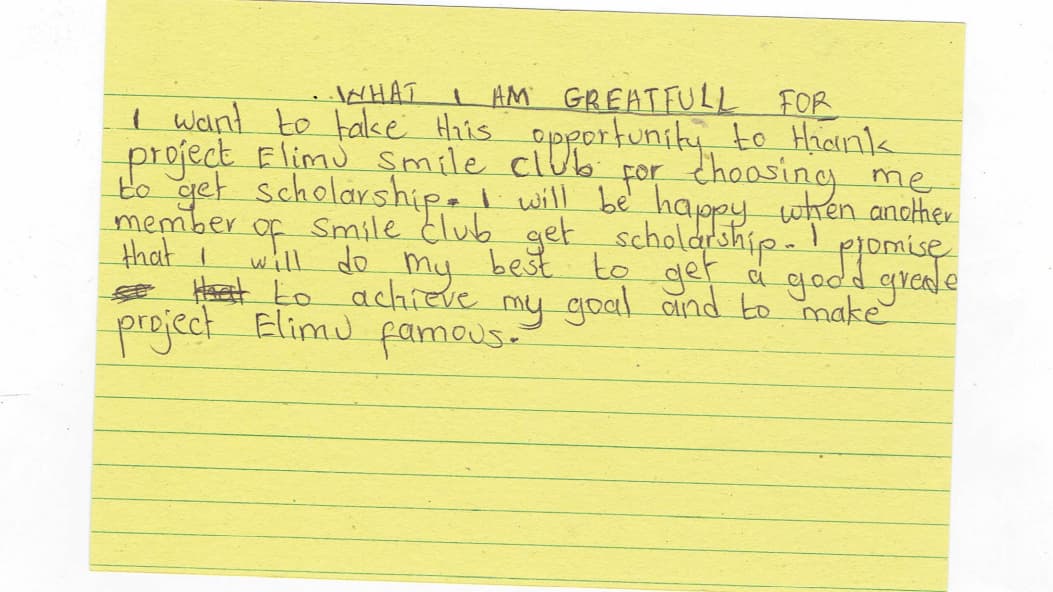 WHAT I AM GREATFULL FOR
I want to take this opportunity to thank
project Elimu smile club for choosing me
to get scholarship. I will be happy when another
member of smile club get scholarship. I promise
that I will do my best to get a good grade
so that to achieve my goal and to make
project Elimu famous.